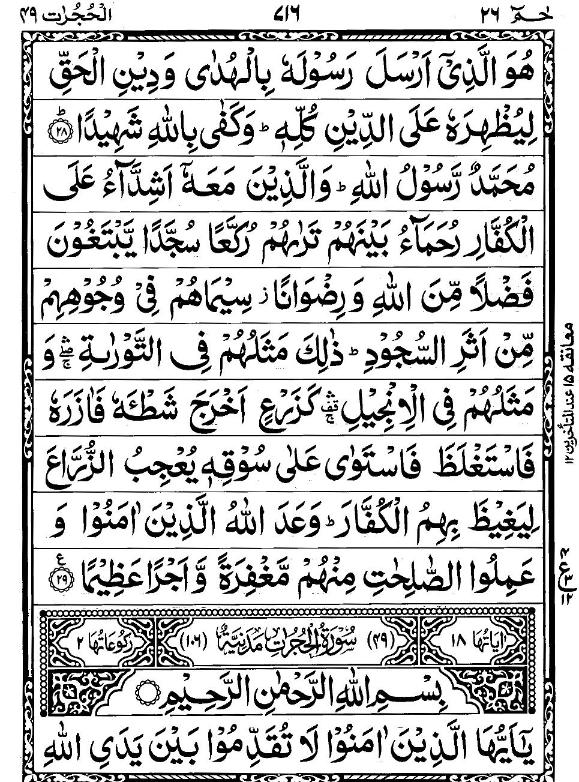 حٰمٓ ٢٦
٧١٦
الحُجُرٰت ٤٩
هُوَ الَّذِیْۤ اَرْسَلَ رَسُوْلَهٗ بِالْهُدٰی وَدِیْنِ الْحَقِّ
لِیُظْهِرَهٗ عَلَی الدِّیْنِ كُلِّهٖ ؕ وَكَفٰی بِاللّٰهِ شَهِیْدًا ؕ ۝٢٨
مُحَمَّدٌ رَّسُوْلُ اللّٰهِ ؕ وَالَّذِیْنَ مَعَهٗۤ اَشِدَّآءُ عَلَی
الْكُفَّارِ رُحَمَآءُ بَیْنَهُمْ تَرٰىهُمْ رُكَّعًا سُجَّدًا یَّبْتَغُوْنَ
فَضْلًا مِّنَ اللّٰهِ وَرِضْوَانًا ؗ سِیْمَاهُمْ فِیْ وُجُوْهِهِمْ
مِّنْ اَثَرِ السُّجُوْدِ ؕ ذٰلِكَ مَثَلُهُمْ فِی التَّوْرٰىةِ ۛۖۚ وَ
مَثَلُهُمْ فِی الْاِنْجِیْلِ ۛ۫ۚ كَزَرْعٍ اَخْرَجَ شَطْـَٔهٗ فَاٰزَرَهٗ
فَاسْتَغْلَظَ فَاسْتَوٰی عَلٰی سُوْقِهٖ یُعْجِبُ الزُّرَّاعَ
لِیَغِیْظَ بِهِمُ الْكُفَّارَ ؕ وَعَدَ اللّٰهُ الَّذِیْنَ اٰمَنُوْا وَ
عَمِلُوا الصّٰلِحٰتِ مِنْهُمْ مَّغْفِرَةً وَّاَجْرًا عَظِیْمًا ۝٢٩ ع
اٰیَاتُهَا ١٨
(٤٩) سُوْرَةُ الْحُجُرٰتِ مَدَنِیَّةٌ (١٠٦)
رُكُوْعَاتُهَا ٢
بِسْمِ اللّٰهِ الرَّحْمٰنِ الرَّحِیْمِ ۝
یٰۤاَیُّهَا الَّذِیْنَ اٰمَنُوْا لَا تُقَدِّمُوْا بَیْنَ یَدَیِ اللّٰهِ
معانقه ١٥ عند المتأخرين ١٢
٤
ع
٣
١٢